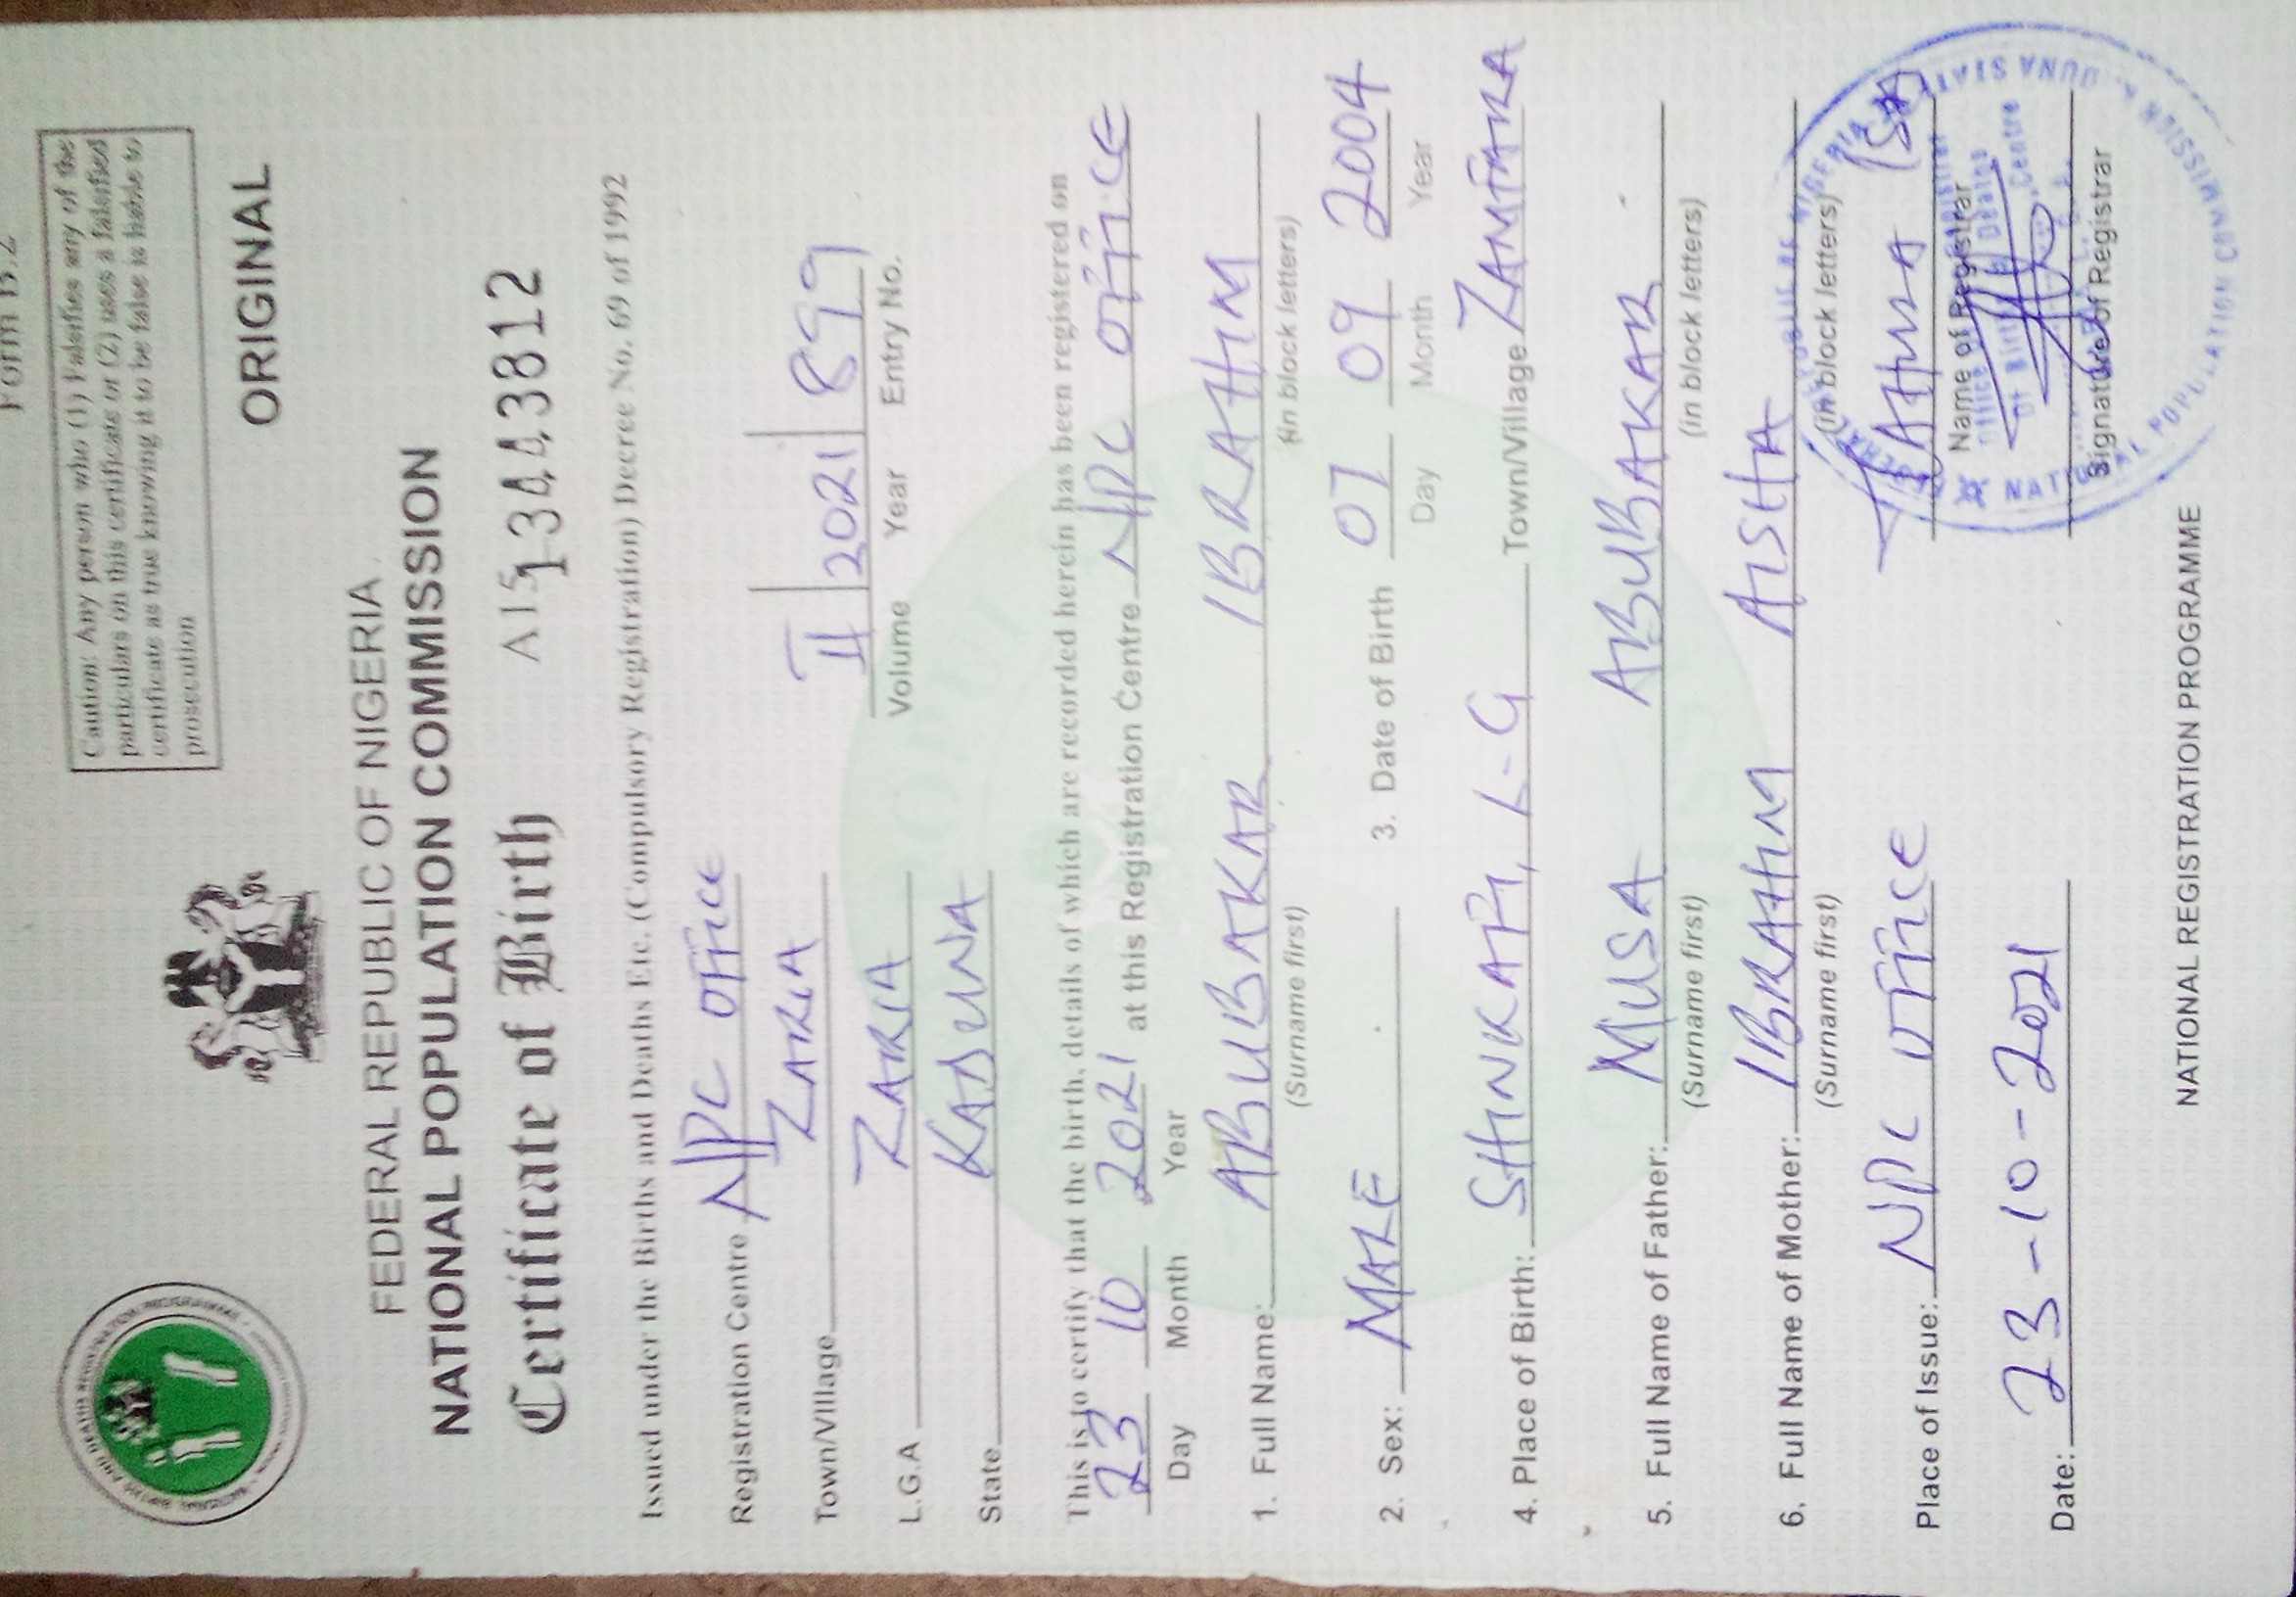 Form B.2
Caution: Any person who (1) Falsifies any of the
particulars on this certificate or (2) uses a falsified
certificate as true knowing it to be false is liable to
prosecution
ORIGINAL
FEDERAL REPUBLIC OF NIGERIA
NATIONAL POPULATION COMMISSION
Certificate of Birth A15 13443812
Issued under the Births and Deaths Etc. (Compulsory Registration) Decree No. 69 of 1992
Registration Centre NPC OFFICE
Town/Village ZARIA
II 2021 899
Volume Year Entry No.
L.G.A ZARIA
State KADUNA
This is to certify that the birth, details of which are recorded herein has been registered on
23 10 2021 at this Registration Centre NPC OFFICE
Day Month Year
1. Full Name: ABUBAKAR IBRAHIM
(Surname first) (in block letters)
2. Sex: MALE 3. Date of Birth 07 09 2004
Day Month Year
4. Place of Birth: SHINKAFI, L-G Town/Village ZAMFARA
5. Full Name of Father: MUSA ABUBAKAR
(Surname first) (in block letters)
6. Full Name of Mother: IBRAHIM AISHA
(Surname first) (in block letters)
Place of Issue: NPC OFFICE
Name of Registrar
Date: 23-10-2021
Signature of Registrar
NATIONAL POPULATION COMMISSION
NATIONAL REGISTRATION PROGRAMME